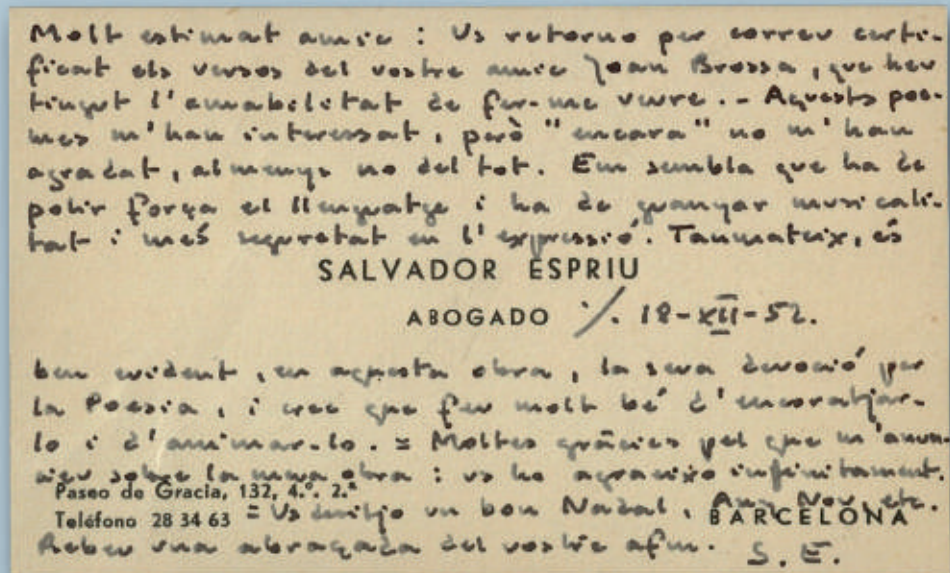 Molt estimat amic : Us retorno per correu certi-
ficat els versos del vostre amic Joan Brossa, que heu
tingut l'amabilitat de fer-me veure. - Aquests poe-
mes m'han interessat, però "encara" no m'han
agradat, almenys no del tot. Em sembla que ha de
polir força el llenguatge i ha de guanyar musicali-
tat i més seguretat en l'expressió. Tanmateix, és
SALVADOR ESPRIU
ABOGADO ./. 18-XII-52.
ben evident, en aquesta obra, la seva devoció per
la Poesia, i crec que feu molt bé d'encoratjar-
lo i d'animar-lo. = Moltes gràcies pel que m'anun-
cieu sobre la meva obra : us ho agraeixo infinitament.
Paseo de Gracia, 132, 4.º, 2.ª
Teléfono 28 34 63 = Us desitjo un bon Nadal, Any Nou, etc.
BARCELONA
Rebeu una abraçada del vostre afm. S. E.